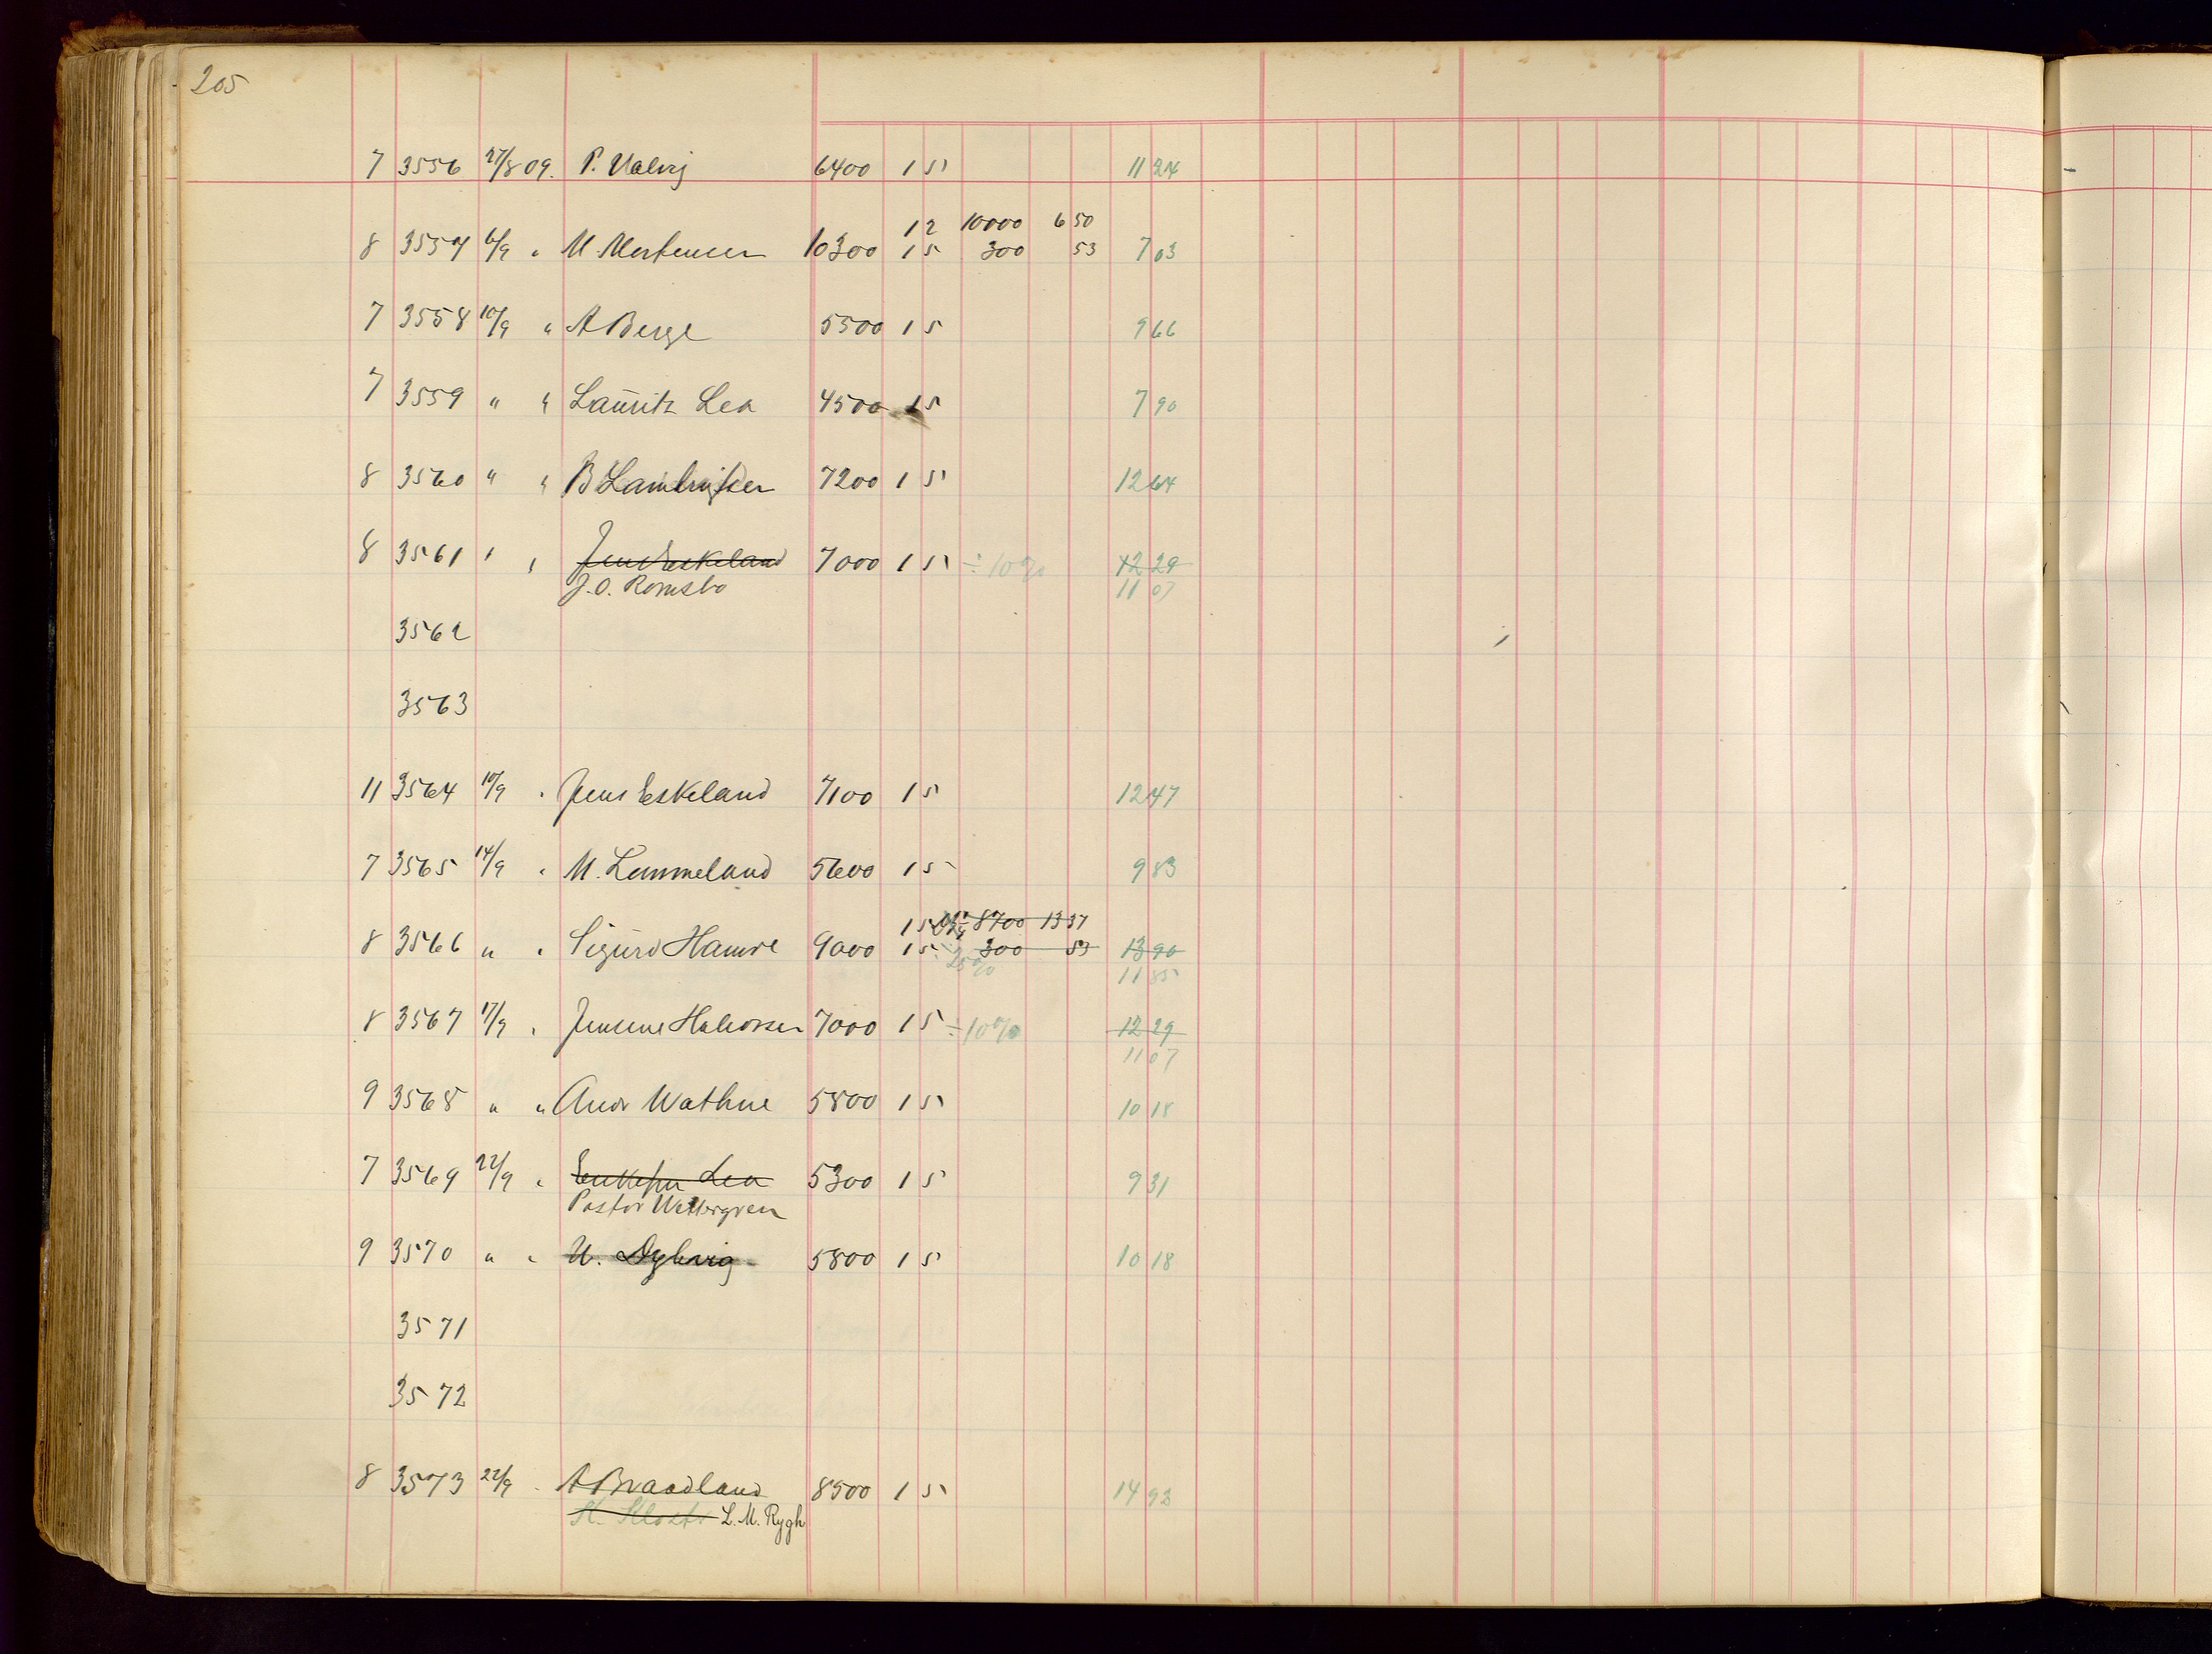 205
7 3556 27/8 09. P. Valvig 6400 1 5 11 24
1 2 10000 6 50
8 3557 6/9 " M Mortensen 10300 1 5 300 53 7 03
7 3558 10/9 " A Berge 5500 1 5 9 66
7 3559 " " Lauritz Lea 4500 1 5 7 90
8 3560 " " B Lauritzsen 7200 1 5 12 64
8 3561 " " Jens Eskeland 7000 1 5 ÷ 10% 12 29
J. O. Romsbo 11 07
3562
3563
11 3564 10/9 " Jens Eskeland 7100 1 5 12 47
7 3565 14/9 " M. Lammeland 5600 1 5 9 83
1 5 8700 13 37
8 3566 " " Sigurd Hamre 9000 1 5 300 53 13 90
25% 11 85
8 3567 17/9 " Jensine Halvorsen 7000 1 5 ÷ 10% 12 29
11 07
9 3568 " " Andr Wathne 5800 1 5 10 18
7 3569 22/9 " Lea 5300 1 5 9 31
Pastor Wettergren
9 3570 " " U. Dybvig 5800 1 5 10 18
3571
3572
8 3573 22/9 " A Braadland 8500 1 5 14 93
L. M. Rygh